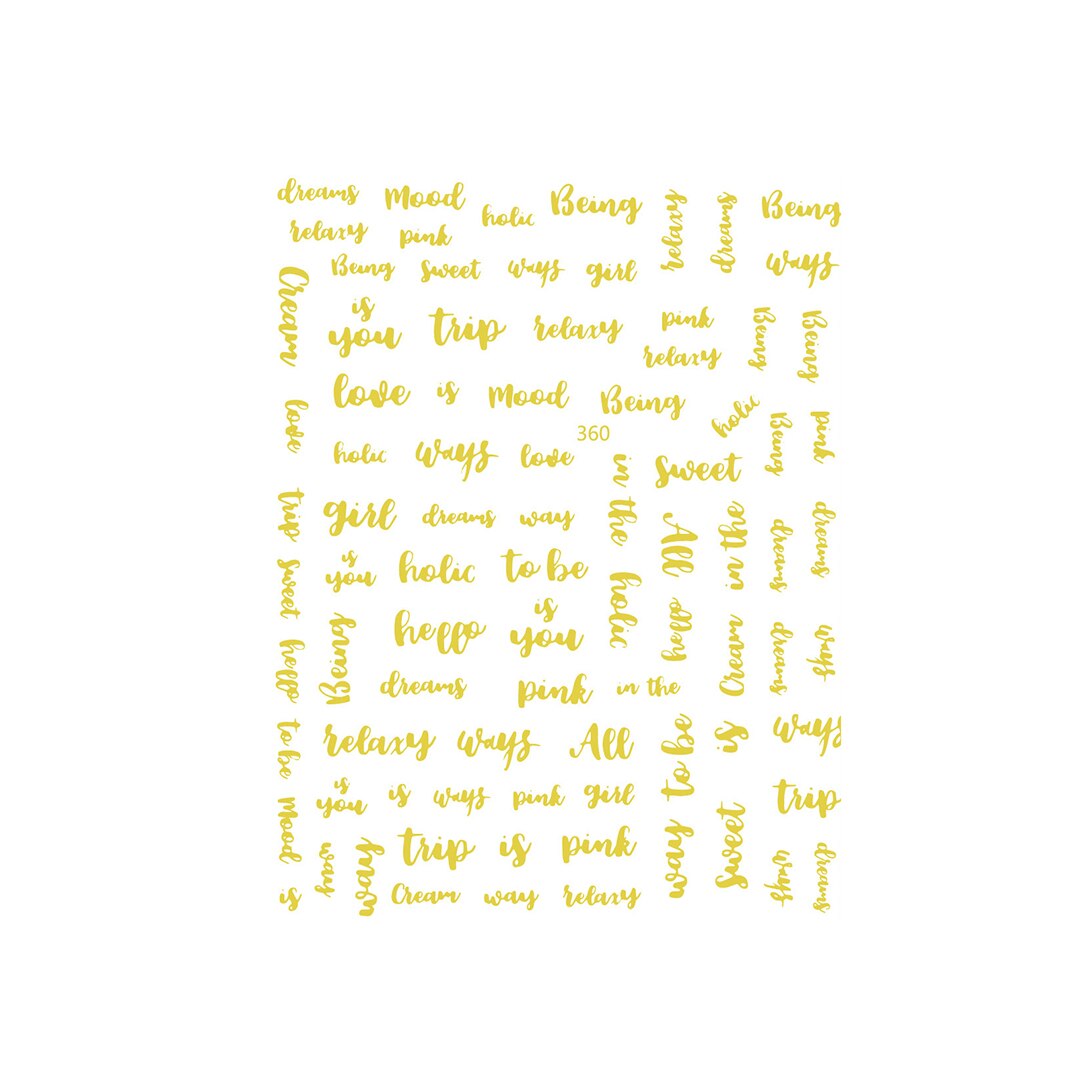 dreams Mood holic Being relaxy dreams Being
relaxy pink
Being Sweet ways girl ways
Cream
is
you trip relaxy pink Being Being
relaxy
love is Mood Being holic
love 360 Being pink
holic ways love in the Sweet
trip girl dreams way All in the dreams dreams
is
you holic to be
sweet holic hello Cream dreams ways
hello Being hello is
you
dreams pink in the
to be relaxy ways All to be is ways
is
you is ways pink girl trip
Mood trip is pink way Sweet ways dreams
is way way Cream way relaxy